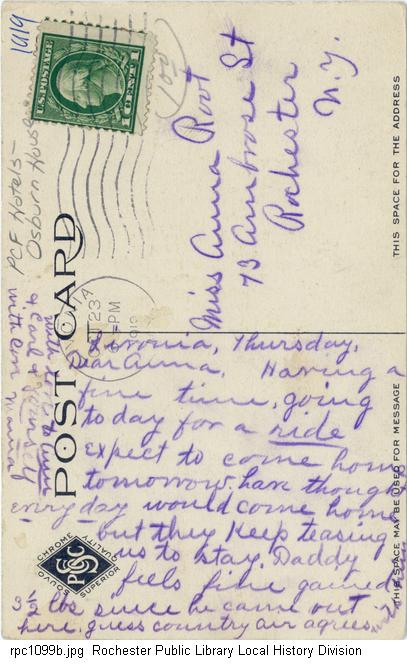 1919
U.S. POSTAGE
1 CENT 1
100
PCF Hotels-
Osburn House
POST CARD
OCT 23
-PM
1919
Miss Anna Root
73 Ambrose St
Rochester
N.Y.
THIS SPACE FOR THE ADDRESS
THIS SPACE MAY BE USED FOR MESSAGE
Livonia, Thursday,
Dear Anna. Having a
fine time, going
today for a ride
expect to come home
tomorrow, have thought
every day would come home
but they keep teasing
us to stay. Daddy
feels fine gained
3 1/2 lbs since he came out
here, guess country air agrees
with love to
mama
CHROME
QUALITY
SUPERIOR
rpc1099b.jpg Rochester Public Library Local History Division